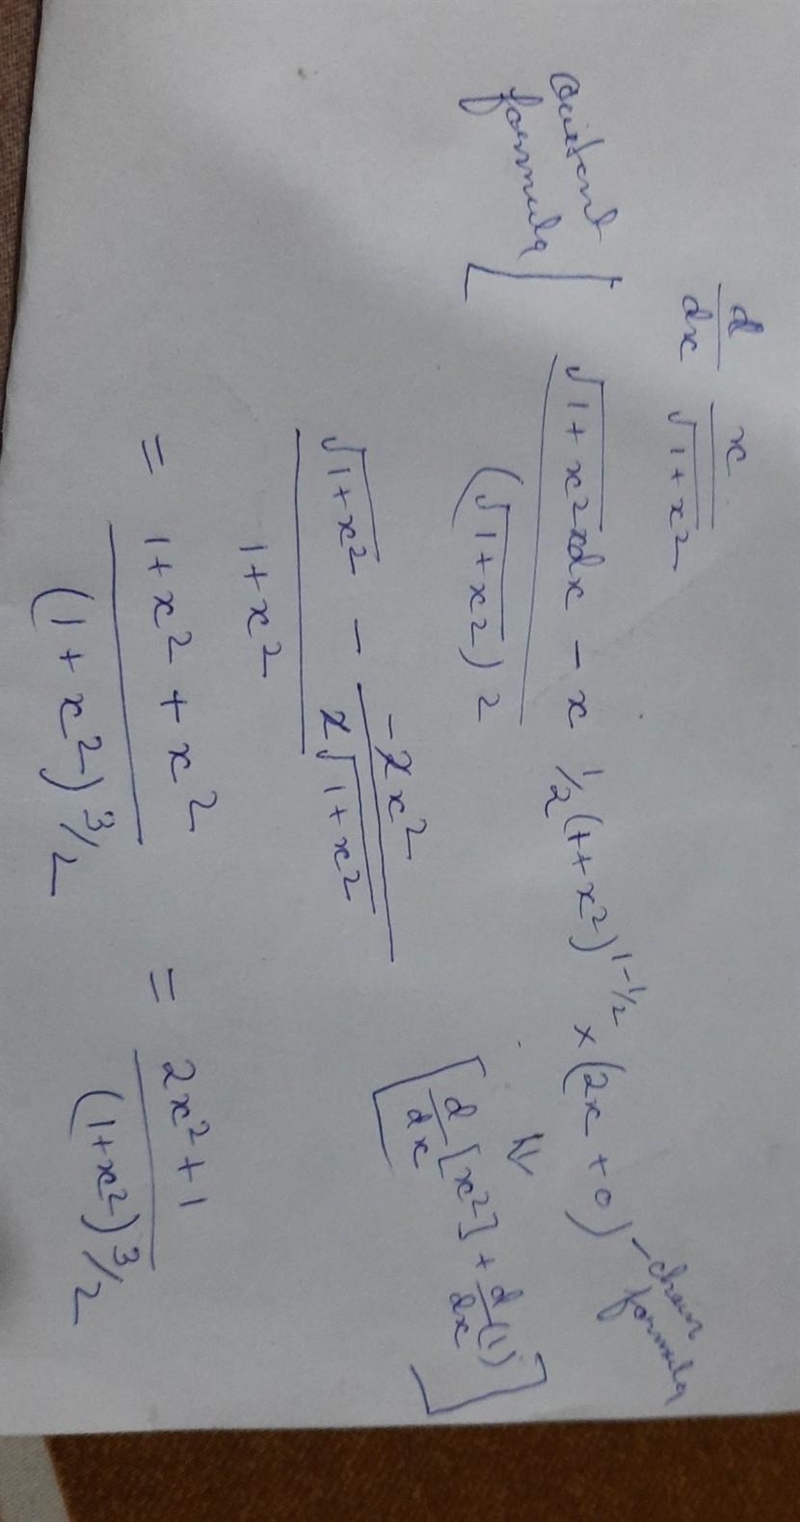 d/dx x/√1+x²
Quietent formula [ √1+x² xdx - x ½(1+x²)^1-½ × (2x+0) - chain formula
(√1+x²)²
⇓
[d/dx[x²] + d/dx(1)]
√1+x² - -2x²/2√1+x²
1+x²
= 1+x²+x²/(1+x²)^3/2 = 2x²+1/(1+x²)^3/2